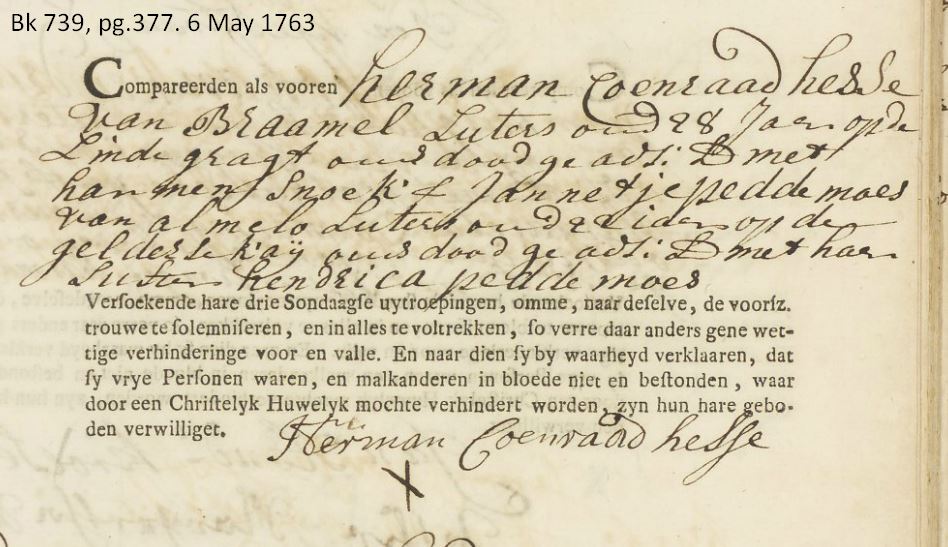 Bk 739, pg.377. 6 May 1763
Compareerden als vooren herman Coenraad hesse
van Braamel Luters oud 28 Jaer op de
Linde gragt ouds dood ge ads: D met
harmen Snoek & Jannetje peddemoes
van almelo Luters, oud 22 idem op de
gelderse kaÿ ouds dood ge ads: D met haer
Suster hendrica peddemoes
Versoekende hare drie Sondaagse uytroepingen, omme, naar deselve, de voorsz.
trouwe te solemniseren, en in alles te voltrekken, so verre daar anders gene wet-
tige verhinderinge voor en valle. En naar dien sy by waarheyd verklaaren, dat
sy vrye Personen waren, en malkanderen in bloede niet en bestonden, waar
door een Christelyk Huwelyk mochte verhindert worden, zyn hun hare gebo-
den verwilliget.
Herman Coenraad hesse
X